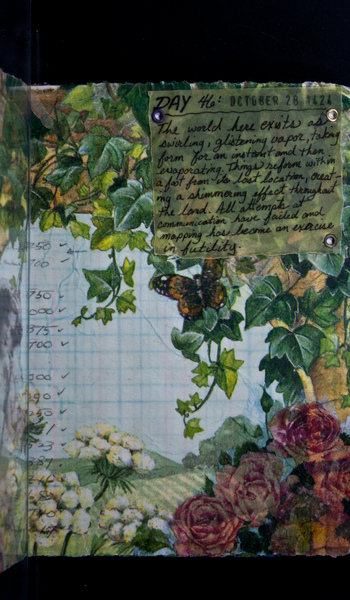 DAY 46: OCTOBER 28 1624
The world here exists as
swirling, glistening vapor, taking
form for an instant and then
evaporating. Things reform within
a foot from the last location, creat-
ing a shimmering effect throughout
the land. All attempts at
communication have failed and
mapping has become an exercise
in futility.
750 ✓
575 ✓
700 ✓